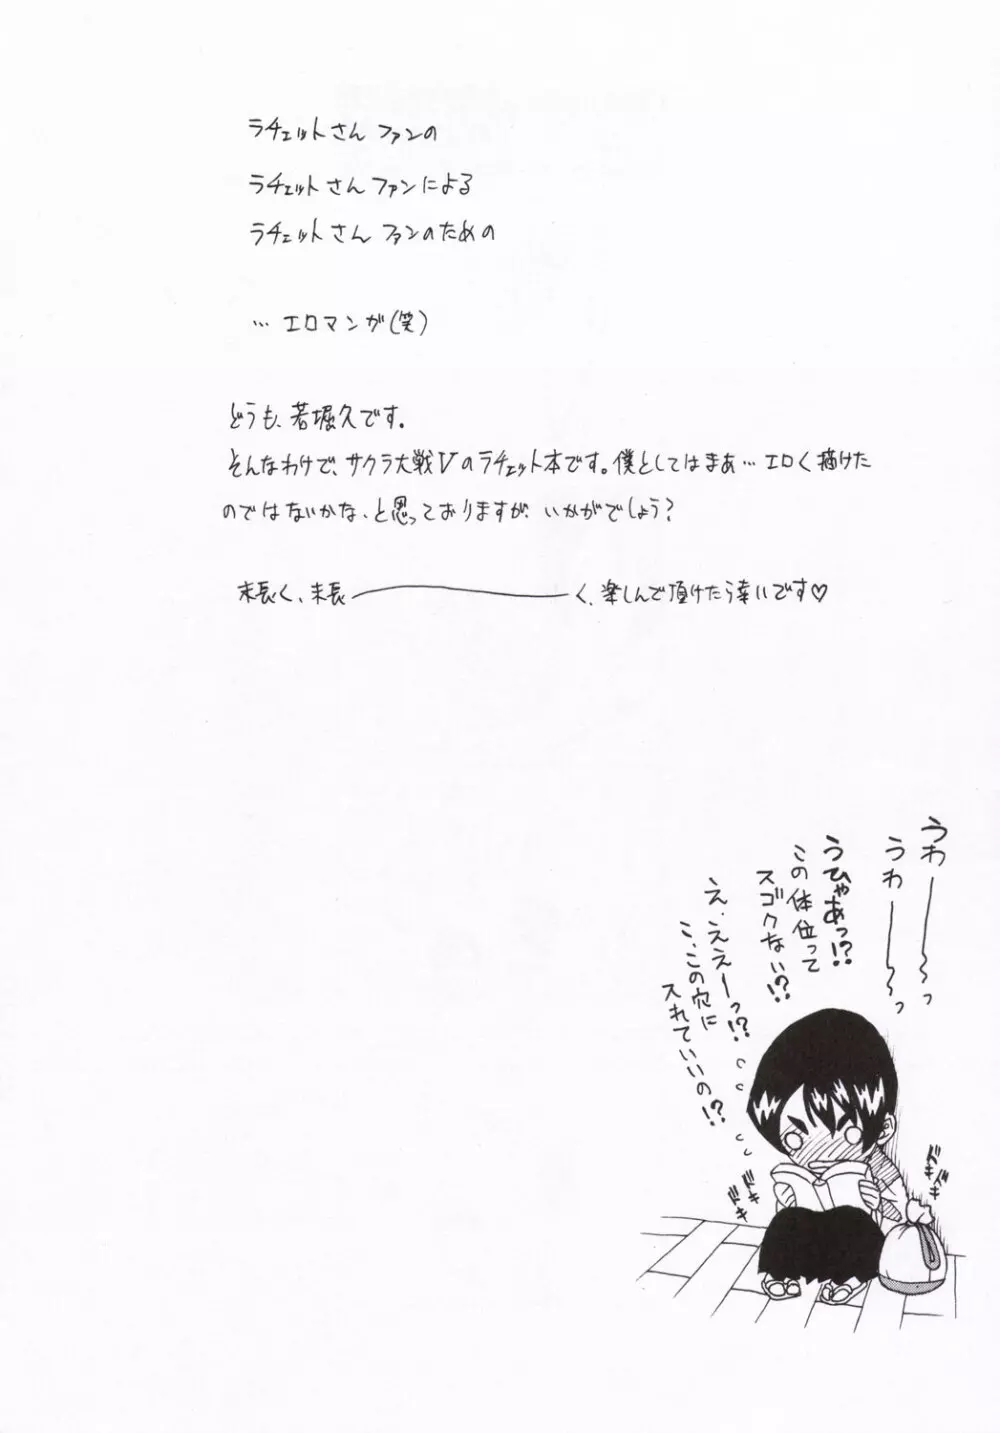 ラチェットさんファンの
ラチェットさんファンによる
ラチェットさんファンのための
… エロマンガ(笑)
どうも、若堀久です。
そんなわけで、サクラ大戦Ⅴのラチェット本です。僕としてはまあ…エロく描けた
のではないかな、と思っておりますが、いかがでしょう?
末長く、末長――――く、楽しんで頂けたら幸いです♡
うわ――〜っ
うわ――〜っ
うひゃあっ!?
この体位って
スゴクない!?
え、ええーっ!?
こ、この穴に
入れていいの!?
ドキ
ドキ
ドキ
ドキ